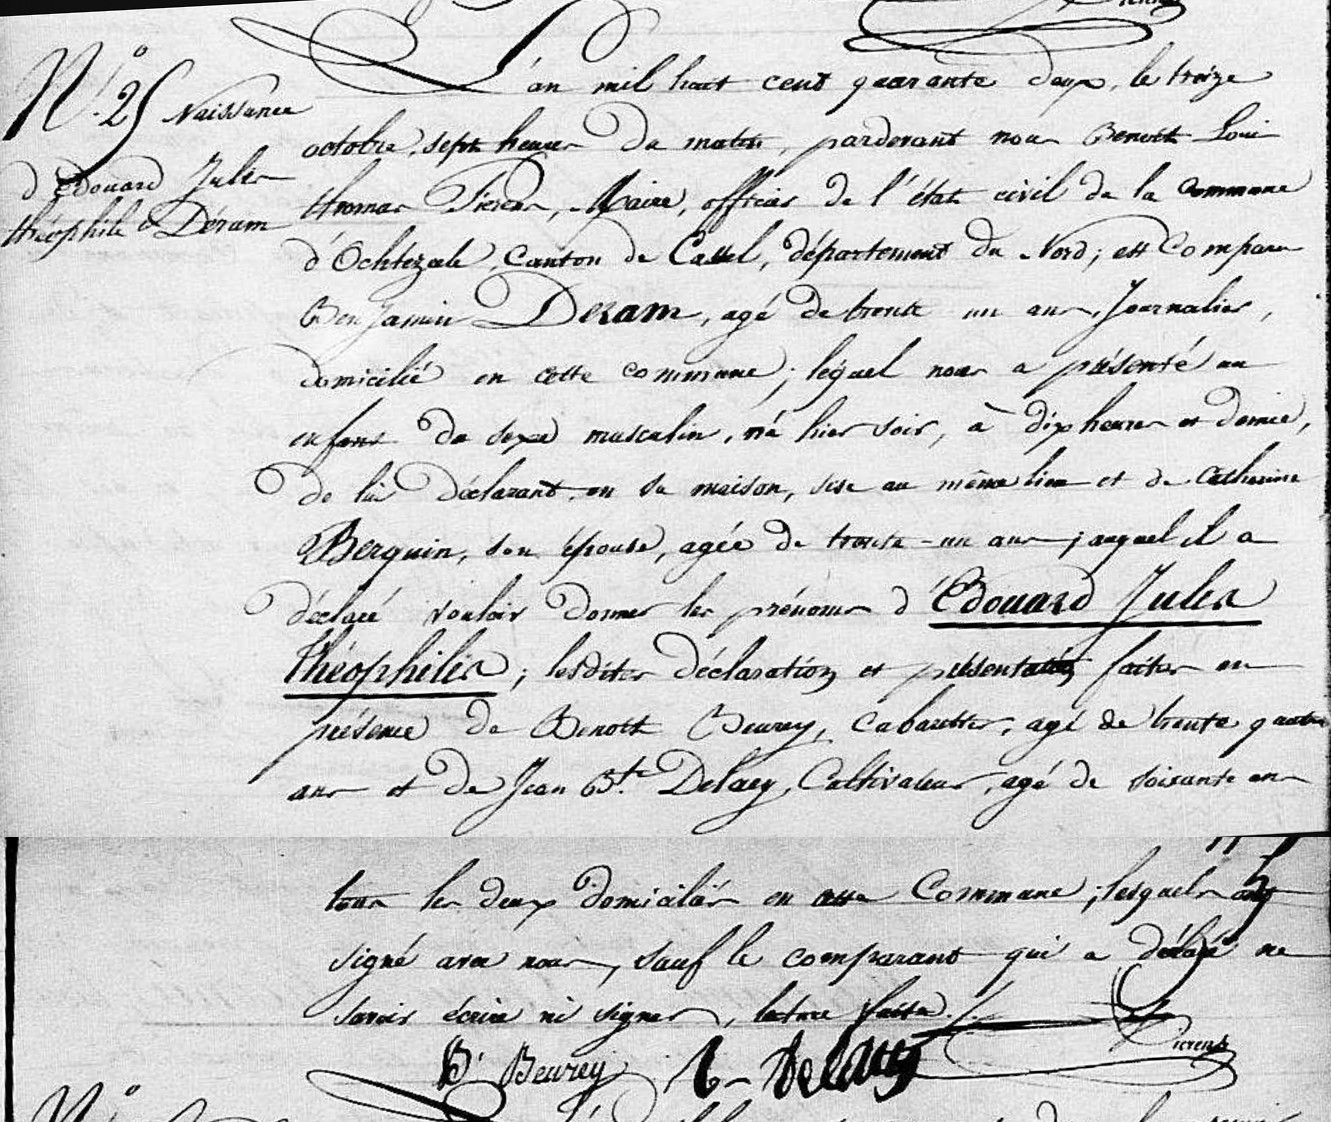 N.° 25 Naissance
d'Edouard Jules
théophile Deram
L'an mil huit cent quarante deux, le treize
octobre, sept heures du matin, pardevant nous Benoit Louis
thomas Fierens, Maire, officier de l'état civil de la commune
d'Ochtezeele, Canton de Cassel, département du Nord; est Comparu
Benjamin Deram, agé de trente un ans, Journalier,
domicilié en cette commune; léquel nous a présenté un
enfant du sexe masculin, né hier soir, à dix heures et demie,
de lui déclarant, en sa maison, sise au même lieu et de Catherine
Berquin, son épouse, agée de trente-un ans; auquel il a
déclaré vouloir donner les prénoms d'Edouard Jules
théophile; lesdites déclaration et présentation faites en
présence de Benoit Beurey, Cabaretier, agé de trente quatre
ans et de Jean Bt.e Delaey, Cultivateur, agé de soixante ans
tous les deux domiciliés en cette Commune; lesquels ont
signé avec nous, sauf le comparant qui a déclaré ne
savoir écrire ni signer, lecture faite.
B. Beurey Delaey Fierens
N.°